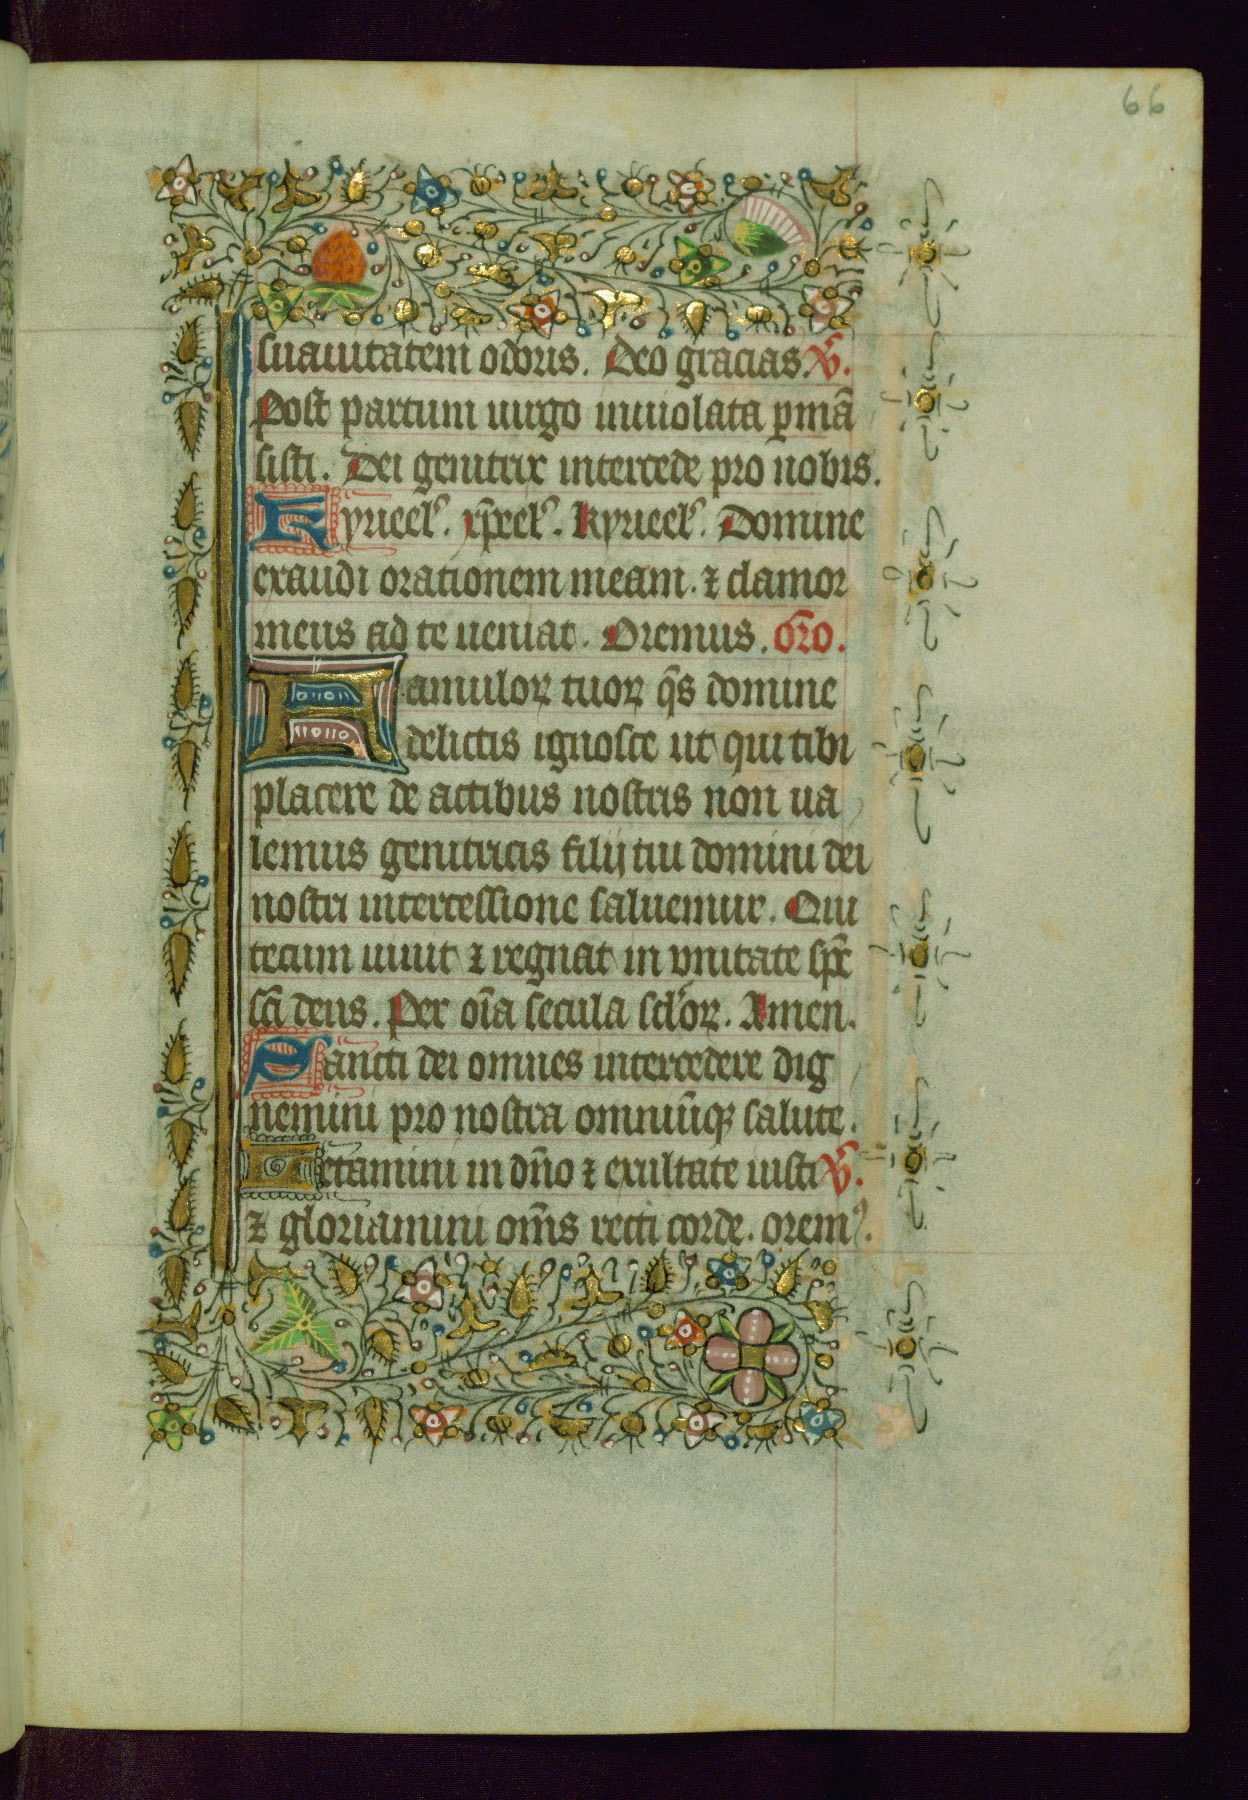 66
suauitatem odoris. Deo gracias. V̄.
Post partum uirgo inuiolata ꝑmā
sisti. Dei genitrix intercede pro nobis.
Kyrieel᾽. xp̄eel᾽. kyrieel᾽. Domine
exaudi orationem meam. ⁊ clamor
meus ad te ueniat. Oremus. or̄o.
Famuloꝝ tuoꝝ q̄s domine
delictis ignosce ut qui tibi
placere de actibus nostris non ua
lemus genitricis filij tui domini dei
nostri intercessione saluemur. Qui
tecum uiuit ⁊ regnat in vnitate sp̄c
sc̄i deus. Per oīa secula sclōꝝ. Amen.
Sancti dei omnes intercedere dig
nemini pro nostra omniūqꝫ salute.
Letamini in dn̄o ⁊ exultate iusti V̄.
⁊ gloriamini om̄s recti corde. orem᾽.
66